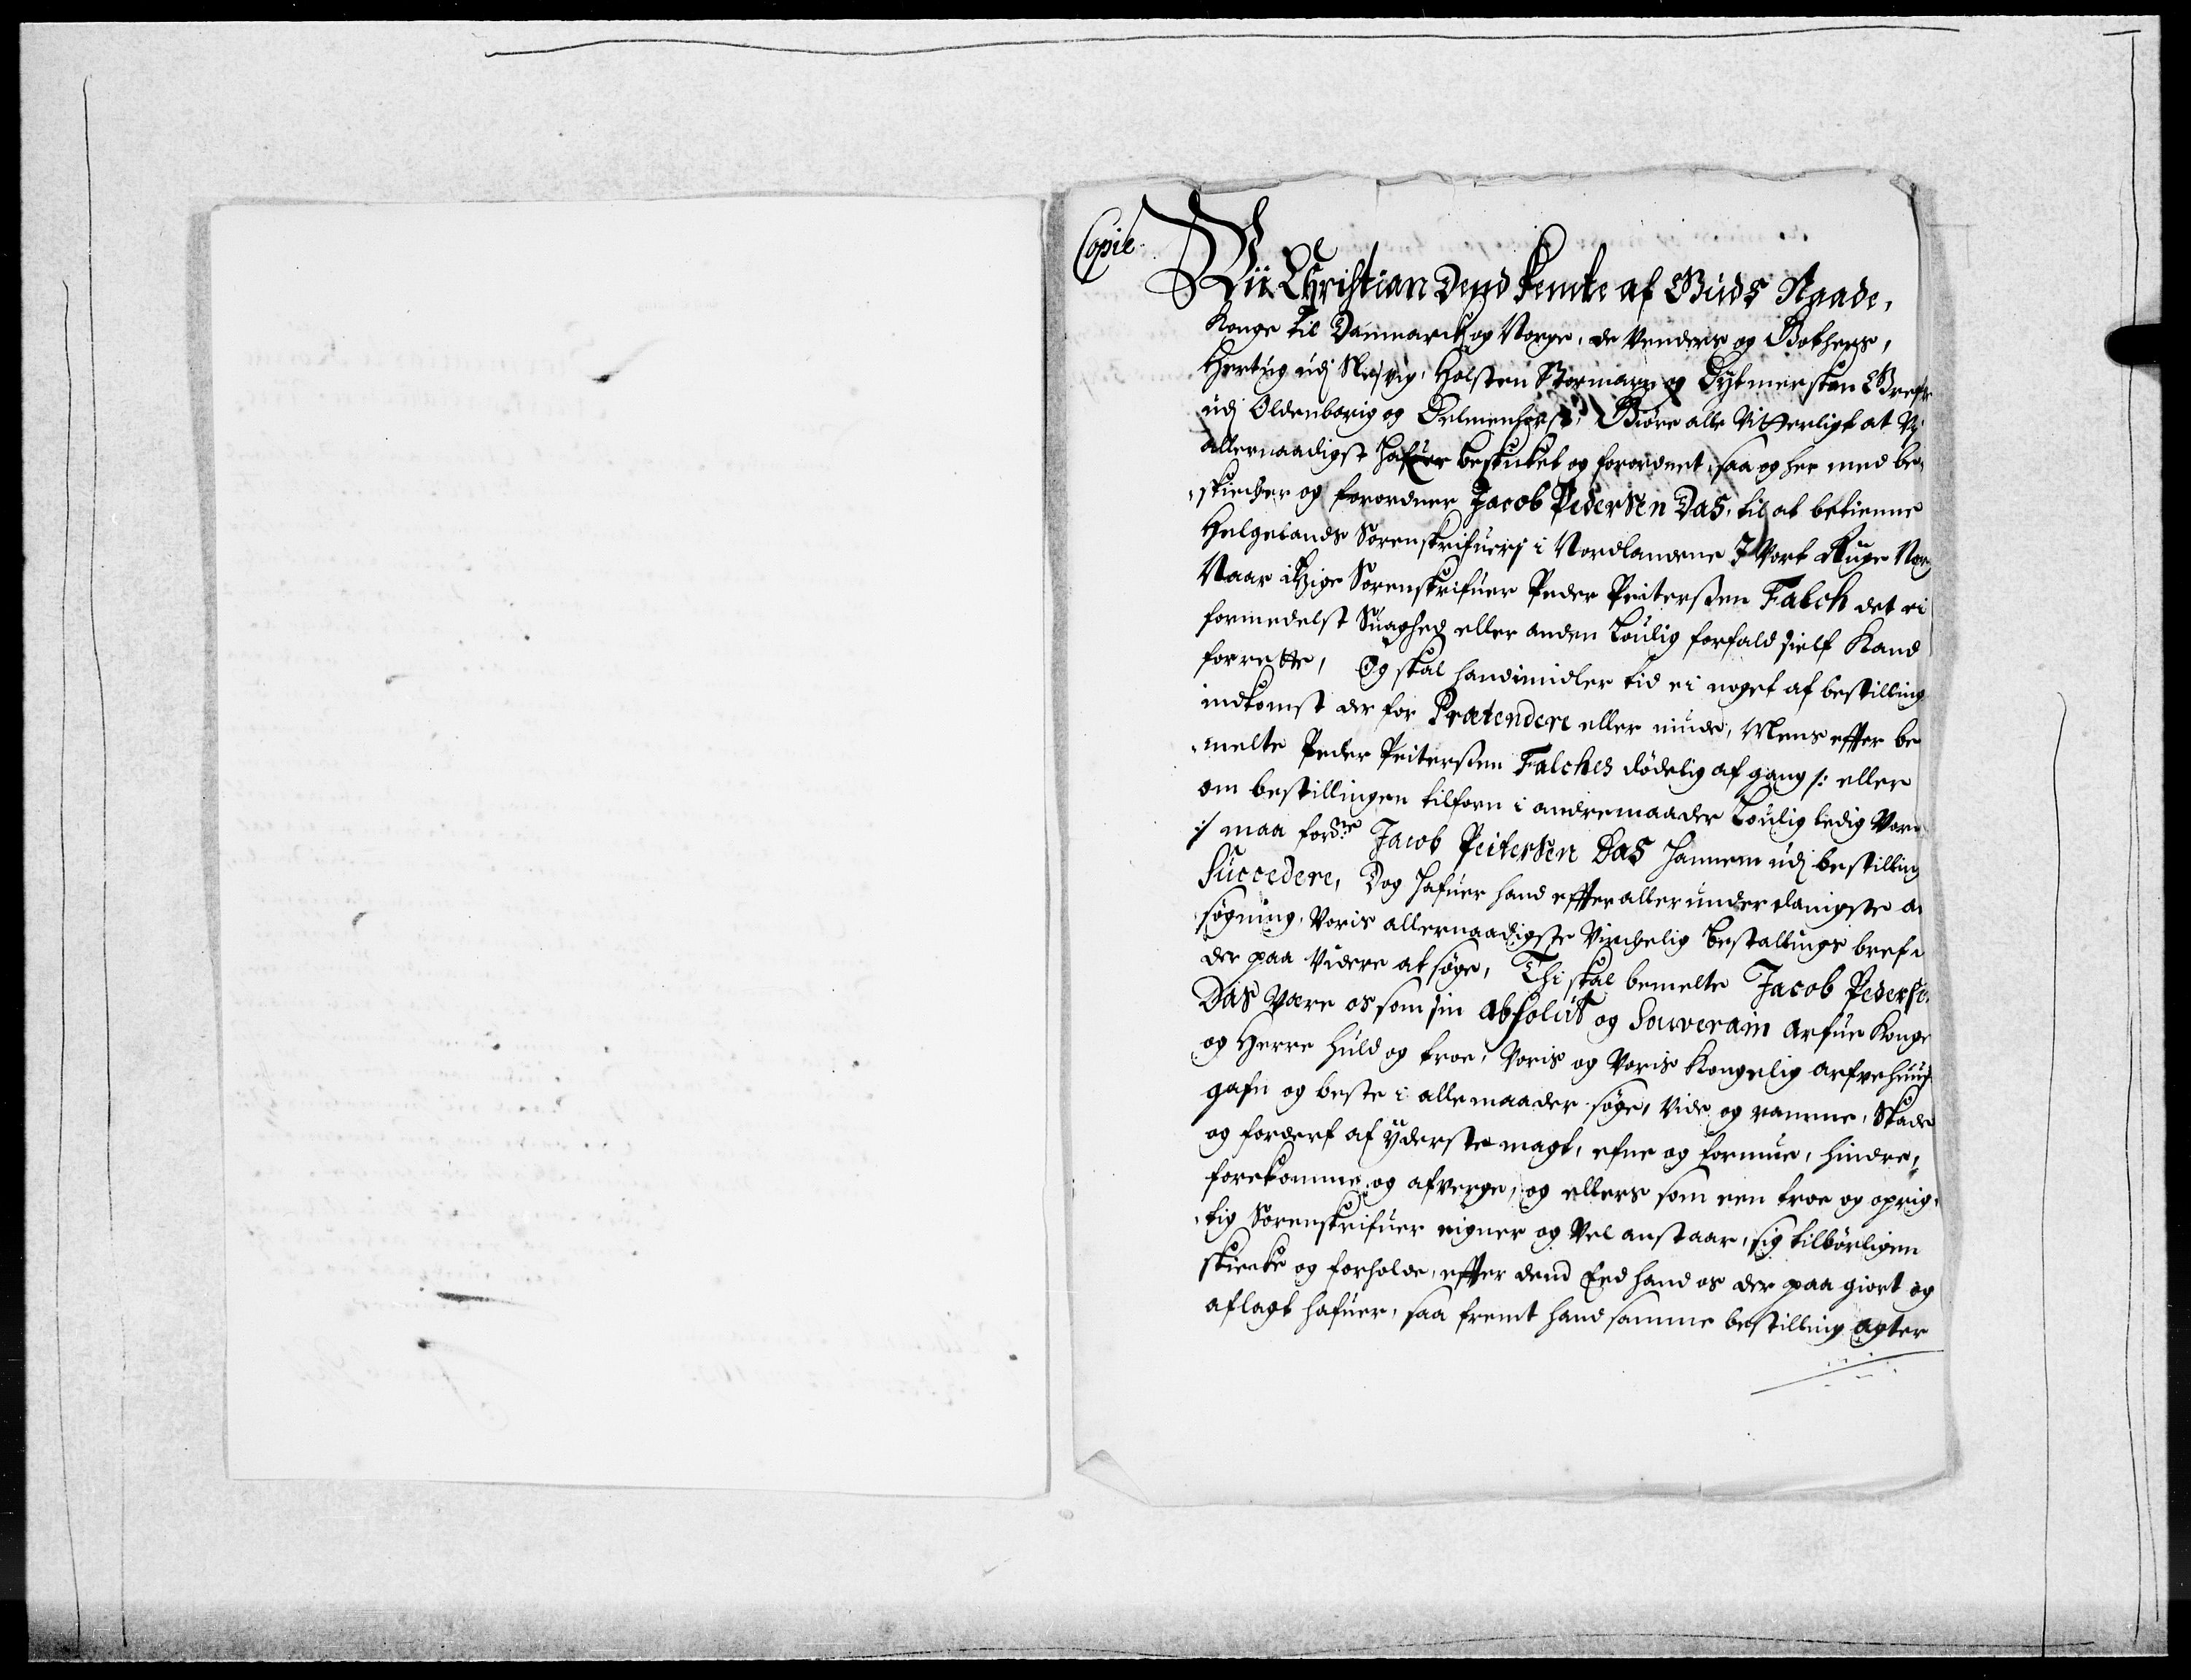 Copie
Wii Christian Dend femte af Guds Naade,
Konge til Danmarck og Norge, de Venders og Gothers,
Hertug udj Slesvig, Holsten Stormarn og Dytmersken Grefve
udj Oldenborig og Delmenhorst, Giöre alle Vitterligt at Vj
allernaadigst hafuer beskicket og forordnet, saa og her med be-
skicker og forordner Jacob Pedersen Das, til at betienne
Helgelands Sorenskrifuerj i Nordlandene J Vort Rige Nor
Naar itzige Sorenskrifuer Peder Peitersen Falch det ei
formedelst Suaghed eller anden Loulig forfald sielf Kand
forrette, Og skal hand imidler tid ei noget af bestilling
indkomst der for Prætendere eller niude, Mens effter be
melte Peder Peitersen Falches dödelig af gang /: eller
om bestillingen tilforn i andre maader Loulig ledig Vore
:/ maa fordne Jacob Peitersen Das hannem udj bestilling
Succedere, Dog hafuer hand effter aller underdanigste an
søgning, Voris allernaadigste Virchelig Bestallings bref
der paa Videre at søge, Thi skal bemelte Jacob Pederse
Das Være os som sin absolut og Souverain arfue Konge
og Herre huld og troe, Voris og Voris Kongelig arfvehuus
gafn og beste i alle maader søge, Vide og ramme, Skade
og forderf af yderste magt, efne og formue, hindre,
forekomme og afverge, og ellers som een troe og oprig-
tig Sorenskrifuer eigner og Vel anstaar, sig tilbörligen
skicke og forholde, effter dend Eed hand os der paa giort og
aflagt hafuer, saa fremt hand samme bestilling agter